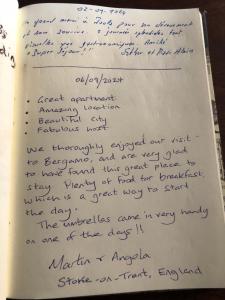 02-09-2024
sourire
Super séjour !!
06/09/2024
• Great apartment
• Amazing location
• Beautiful city
• Fabulous host
We thoroughly enjoyed our visit
to Bergamo, and are very glad
to have found this great place to
stay. Plenty of food for breakfast,
which is a great way to start
the day.
The umbrellas came in very handy
on one of the days !!
Martin & Angola
Stoke-on-Trent, England